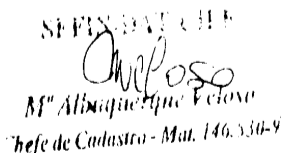 Veloso
Mª Albuquerque Veloso
Chefe de Cadastro - Mat. 146.530-9